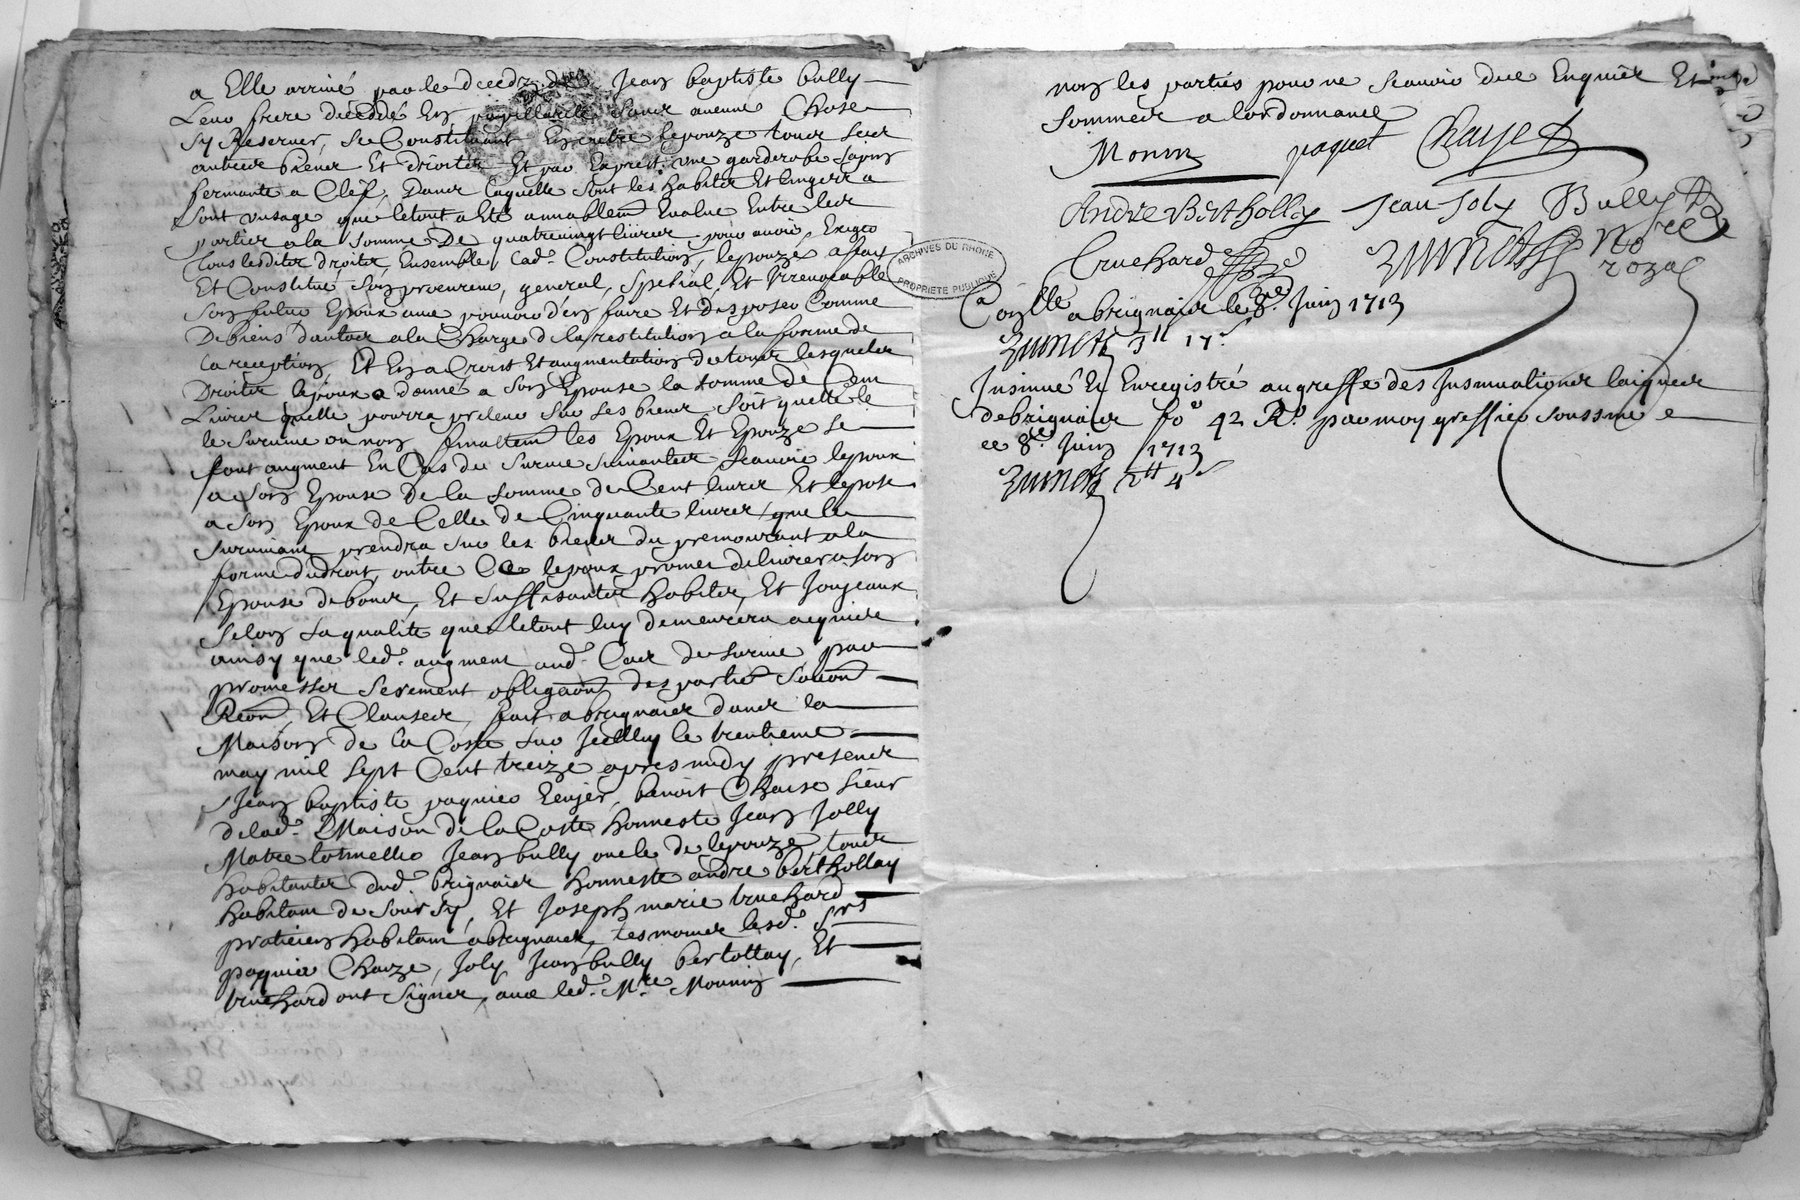 a Elle arrivé par le deceds de Jean baptiste bully
Leur frere decedé En pupillarité sans aucune Chose
sy Reserver, se Constituant En outre lepouze tous ses
autres biens Et droits Et par Exprest une garderobe sapin
fermante a Clef, Dans laquelle sont les habits Et linges a
sont usage que letout a Eté amiablem Evalué Entre les
parties a la somme De quatrevingt livres pour avoir Exiger
tous lesdites droits, Ensemble lad. Constitution, lepouze a fait
Et Constitué son procureur, general, spetial, Et Irrevocable
son futur Epoux avec pouvoir d'en faire Et disposer Comme
De biens dautar a la Charge d la restitution a la forme de
la reception, Et En acroist Et augmentation de tous lesqueles
Droites lepoux a donné a son Epouse la somme de Cent
Livres quelle pourra prelever sur ses biens soit quelle le
le survive ou non finallem les Epoux Et Epouze se
font augment En Cas de survie suivantes, scavoir lepoux
a son Epouse de la somme de Cent livres Et lepose
a son Epoux de Celle de Cinquante livres, que le
survivant prendra sur les biens du premourant a la
forme du droit, outre Ce lepoux promet de livrer a son
Epouse de bones, Et suffisantes habites, Et Joujeaux
selon sa qualité que letout luy demeurera acquise
ainsy que led. augment aud. Cas de survie par
promesses serement obligaon des parties
Reon, Et Clauses, fait a brignais dans la
Maison de la Coste sur Jcelluy le trentieme
may mil sept Cent treize apres midy presens
Jean baptiste paquier benoit Chaise sieur
delad. Maison de la Coste honneste Jean Jolly
Matre Jean bully oncle de lepouze, toutes
habitantes dud. brignais honneste andre berthollay
habitant de soursy, Et Joseph marie truchard
praticien habitant a brignais, tesmoines lesd. Srs
paquier Chaize, Joly Jean bully bertollay, Et
truchard ont signer, avec led. Mre Monnin
non les parties pour ne scavoir de ce Enquises Et
sommées a lordonnance
Monin paquet Chaize
Andre Bertholley Jean Joly Bully
truchard
Con lle a brignais le 8e Juin 1713
Insinué Et Enregistré au greffe des Insinuationes laiques
de brignais fo 42 Ro par moy greffier soussiné
ce 8e Juin 1713
ARCHIVES DU RHÔNE
PROPRIÉTÉ PUBLIQUE